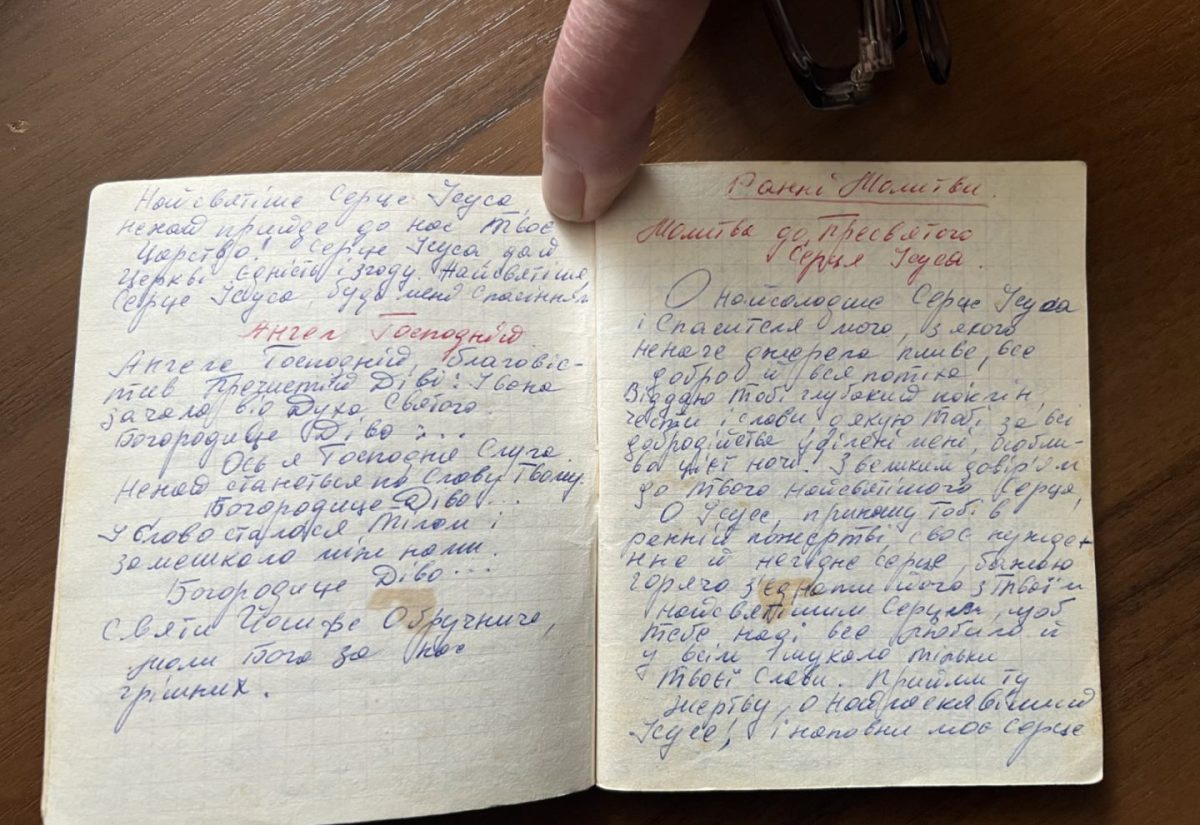 Найсвятіше Серце Ісуса,
нехай прийде до нас Твоє
Царство! Серце Ісуса дай
Церкві єдність і згоду. Найсвятіше
Серце Ісуса, будь мені спасінням
Ангел Господній
Ангел Господній, благовіс-
тив Пречистій Діві: І вона
зачала від Духа Святого.
Богородице Діво...
Ось я Господня Слуга.
Нехай станеться по Слову Твому.
Богородице Діво...
І Слово сталося Тілом і
замешкало між нами.
Богородице Діво...
Святи Йосифе Обручниче,
моли Бога за нас
грішних.
Ранні Молитви.
Молитва до Пресвятого
Серця Ісуса.
О найсолодше Серце Ісуса
і Спасителя мого, з якого
неначе джерела пливе, все
добро й вся потіха,
Віддаю Тобі глубокий поклін,
чести і слави, дякую Тобі за всі
добродійства уділені мені, особли-
во цієї ночі. З великим довір'ям
до Твого Найсвятішого Серця,
О Ісусе, приношу Тобі в
ранній пожертві своє нужден-
нне й негідне серце, бажаю
горячо з'єднати його з Твоїм
Найсвятішим Серцем, щоб
Тебе наді все любило й
у всім шукало тільки
Твоєї Слави. Прийми ту
жертву, о Найласкавіший
Ісусе! і наповни моє серце